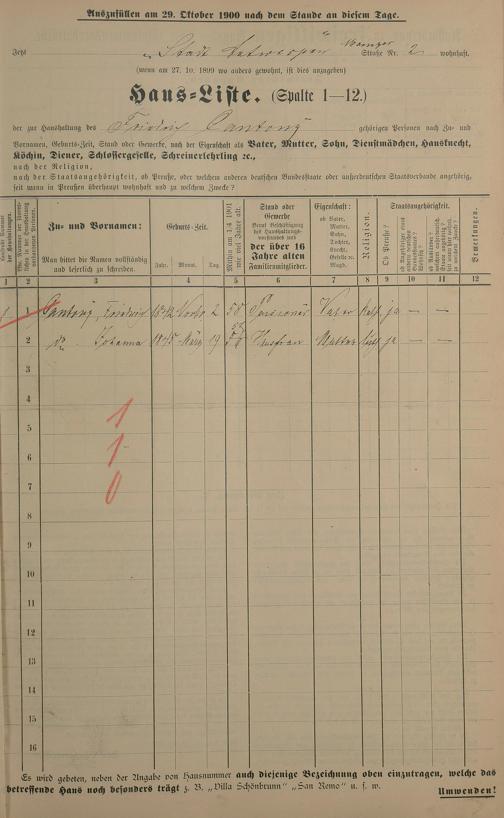 Auszufüllen am 29. Oktober 1900 nach dem Stande an diesem Tage.
Jetzt "Stadt Antwerpen" Mainzer Straße Nr. 2 wohnhaft.
(wenn am 27. 10. 1899 wo anders gewohnt, ist dies anzugeben)
Haus-Liste. (Spalte 1—12.)
der zur Haushaltung des Friedrich Cantong gehörigen Personen nach Zu- und
Vornamen, Geburts-Zeit, Stand oder Gewerbe, nach der Eigenschaft als Vater, Mutter, Sohn, Dienstmädchen, Hausknecht,
Köchin, Diener, Schlossergeselle, Schreinerlehrling ec.,
nach der Religion,
nach der Staatsangehörigkeit, ob Preuße, oder welchem anderen deutschen Bundesstaate oder außerdeutschen Staatsverbande angehörig,
seit wann in Preußen überhaupt wohnhaft und zu welchem Zwecke?
Zu- und Vornamen:
Man bittet die Namen vollständig
und leserlich zu schreiben.
Geburts-Zeit.
Jahr. Monat. Tag.
Mithin am 1/4 1901 wie viel Jahre alt.
Stand oder
Gewerbe
Beruf Beschäftigung
des Haushaltungs-
vorstandes und
der über 16
Jahre alten
Familienmitglieder.
Eigenschaft:
ob Vater,
Mutter,
Sohn,
Tochter,
Knecht,
Geselle ec.
Magd.
Religion.
Staatsangehörigkeit.
Ob Preuße?
Bemerkungen.
1 2 3 4 5 6 7 8 9 10 11 12
1 1 Cantong, Friedrich 1842 2 58 Pensionär Vater kath ja — —
2 do Johanna 1845 März 19 Hausfrau Mutter kath ja — —
3
4
1
5
1
6
0
7
8
9
10
11
12
13
14
15
16
Es wird gebeten, neben der Angabe von Hausnummer auch diejenige Bezeichnung oben einzutragen, welche das
betreffende Haus noch besonders trägt z. B. „Villa Schönbrunn" „San Remo" u. s. w. Umwenden!